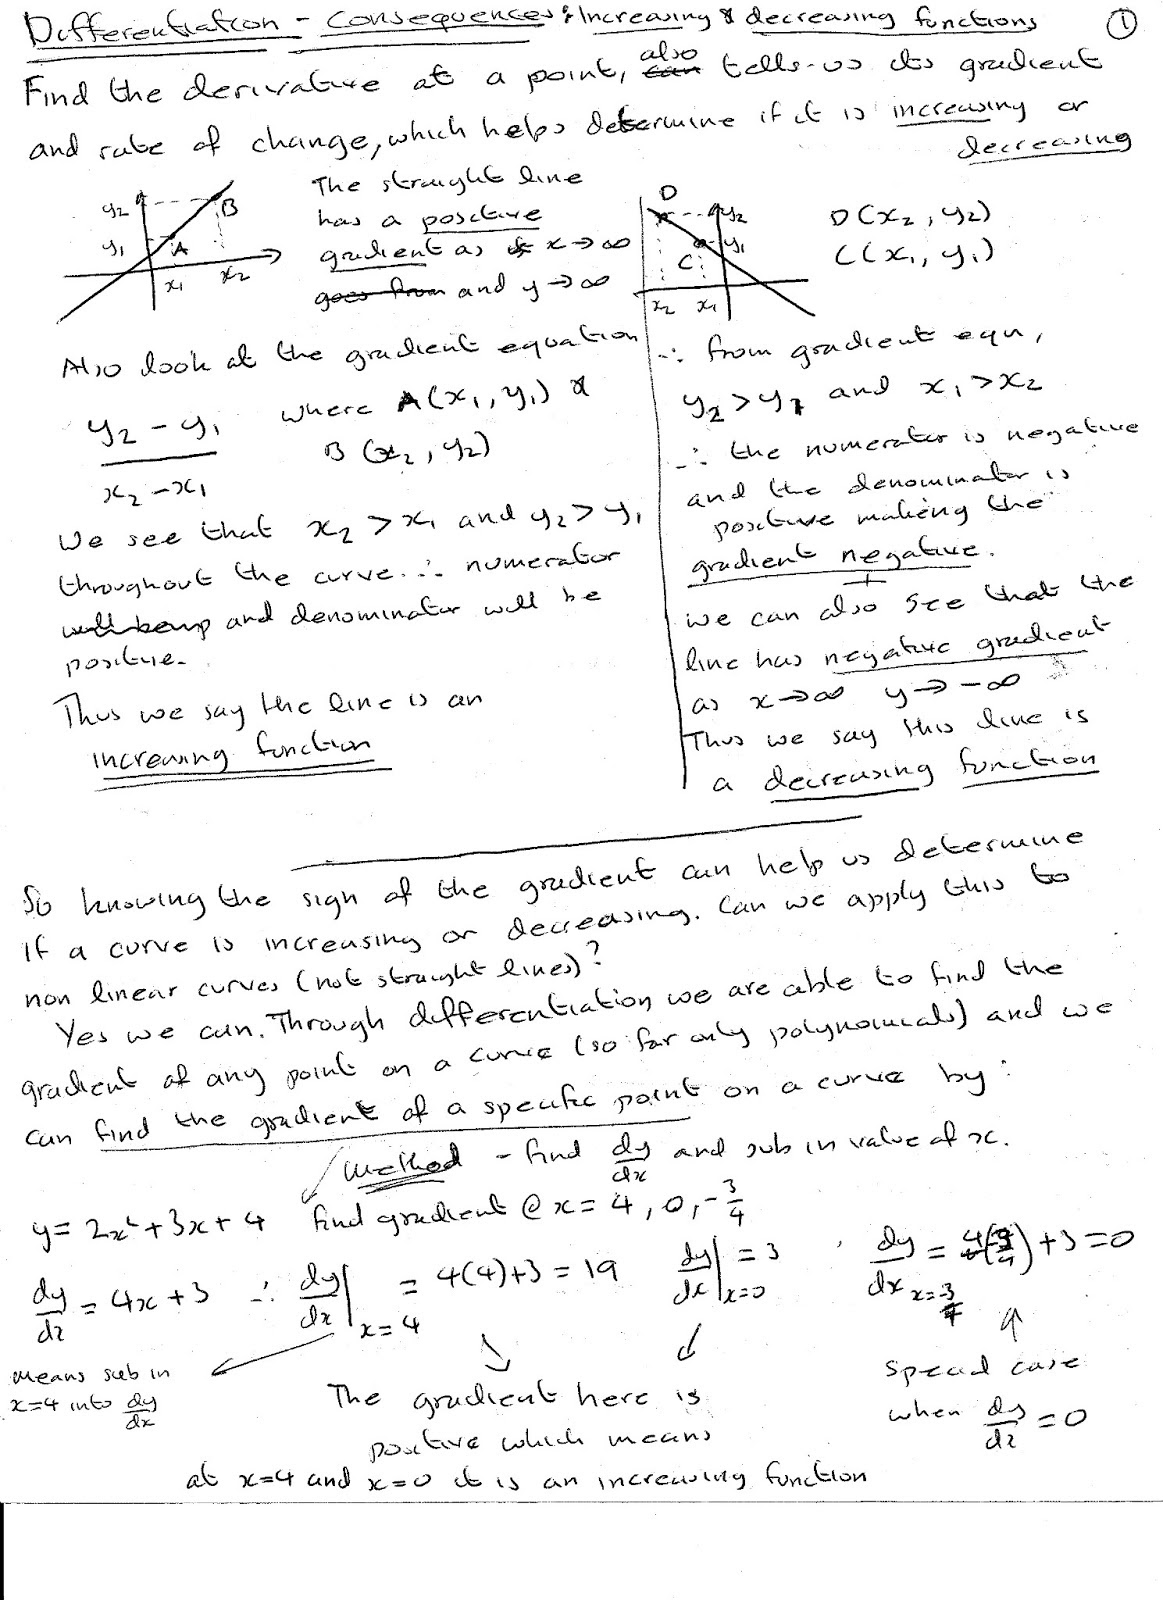 Differentiation - Consequences: Increasing & decreasing functions ①
Find the derivative at a point, also can tells us its gradient
and rate of change, which helps determine if it is increasing or
decreasing
y2 B
y1 A
x1 x2
The straight line
has a positive
gradient as x→∞
goes from and y→∞
D
y2
y1
C
x2 x1
D(x2, y2)
C(x1, y1)
Also look at the gradient equation
y2 - y1
x2 - x1
where A(x1, y1) &
B(x2, y2)
We see that x2 > x1 and y2 > y1
throughout the curve. ∴ numerator
will being and denominator will be
positive.
Thus we say the line is an
increasing function
∴ from gradient eqn,
y2 > y1 and x1 > x2
∴ the numerator is negative
and the denominator is
positive making the
gradient negative.
We can also see that the
line has negative gradient
as x→∞ y→-∞
Thus we say this line is
a decreasing function
So knowing the sign of the gradient can help us determine
if a curve is increasing or decreasing. Can we apply this to
non linear curves (not straight lines)?
Yes we can. Through differentiation we are able to find the
gradient of any point on a curve (so far only polynomials) and we
can find the gradient of a specific point on a curve by:
Method - find dy/dx and sub in value of x.
y = 2x² + 3x + 4 find gradient @ x = 4, 0, -3/4
dy/dx = 4x + 3 ∴ dy/dx|x=4 = 4(4)+3 = 19 dy/dx|x=0 = 3, dy/dx x=-3/4 = 4(-3/4)+3 = 0
means sub in
x=4 into dy/dx
The gradient here is
positive which means
at x=4 and x=0 it is an increasing function
Special case
when dy/dx = 0